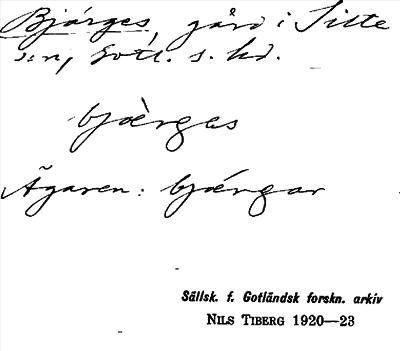 Bjärges, gård i Silte
sn, Gotl. s. hd.
bjèrges
Ägaren: bjérgar
Sällsk. f. Gotländsk forskn. arkiv
NILS TIBERG 1920—23